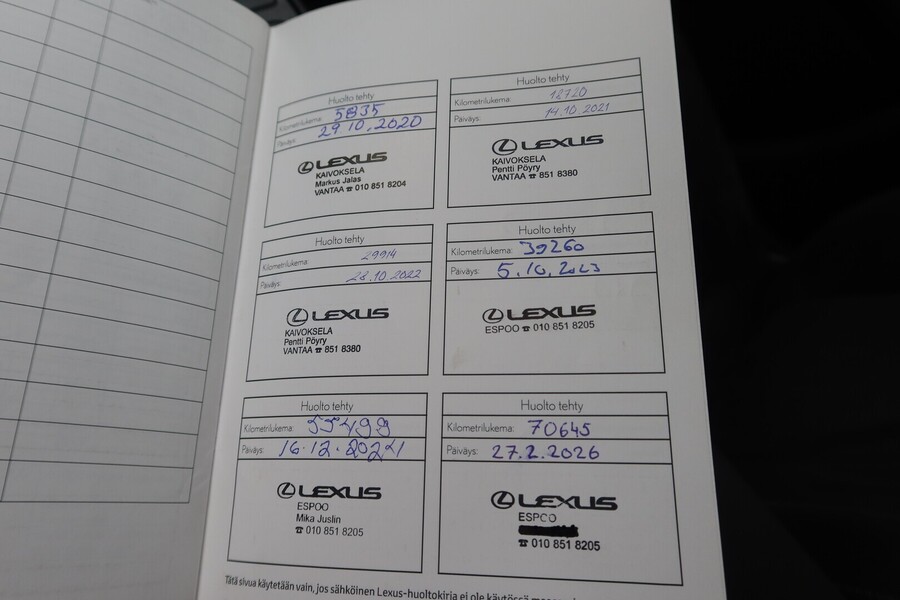 Huolto tehty
Kilometrilukema: 5835
Päiväys: 29.10.2020
LEXUS
KAIVOKSELA
Markus Jalas
VANTAA ☎ 010 851 8204
Huolto tehty
Kilometrilukema: 12720
Päiväys: 14.10.2021
LEXUS
KAIVOKSELA
Pentti Pöyry
VANTAA ☎ 851 8380
Huolto tehty
Kilometrilukema: 29914
Päiväys: 28.10.2022
LEXUS
KAIVOKSELA
Pentti Pöyry
VANTAA ☎ 851 8380
Huolto tehty
Kilometrilukema: 39260
Päiväys: 5.10.2023
LEXUS
ESPOO ☎ 010 851 8205
Huolto tehty
Kilometrilukema: 55499
Päiväys: 16.12.2024
LEXUS
ESPOO
Mika Juslin
☎ 010 851 8205
Huolto tehty
Kilometrilukema: 70645
Päiväys: 27.2.2026
LEXUS
ESPOO
☎ 010 851 8205
Tätä sivua käytetään vain, jos sähköinen Lexus-huoltokirja ei ole käytössä